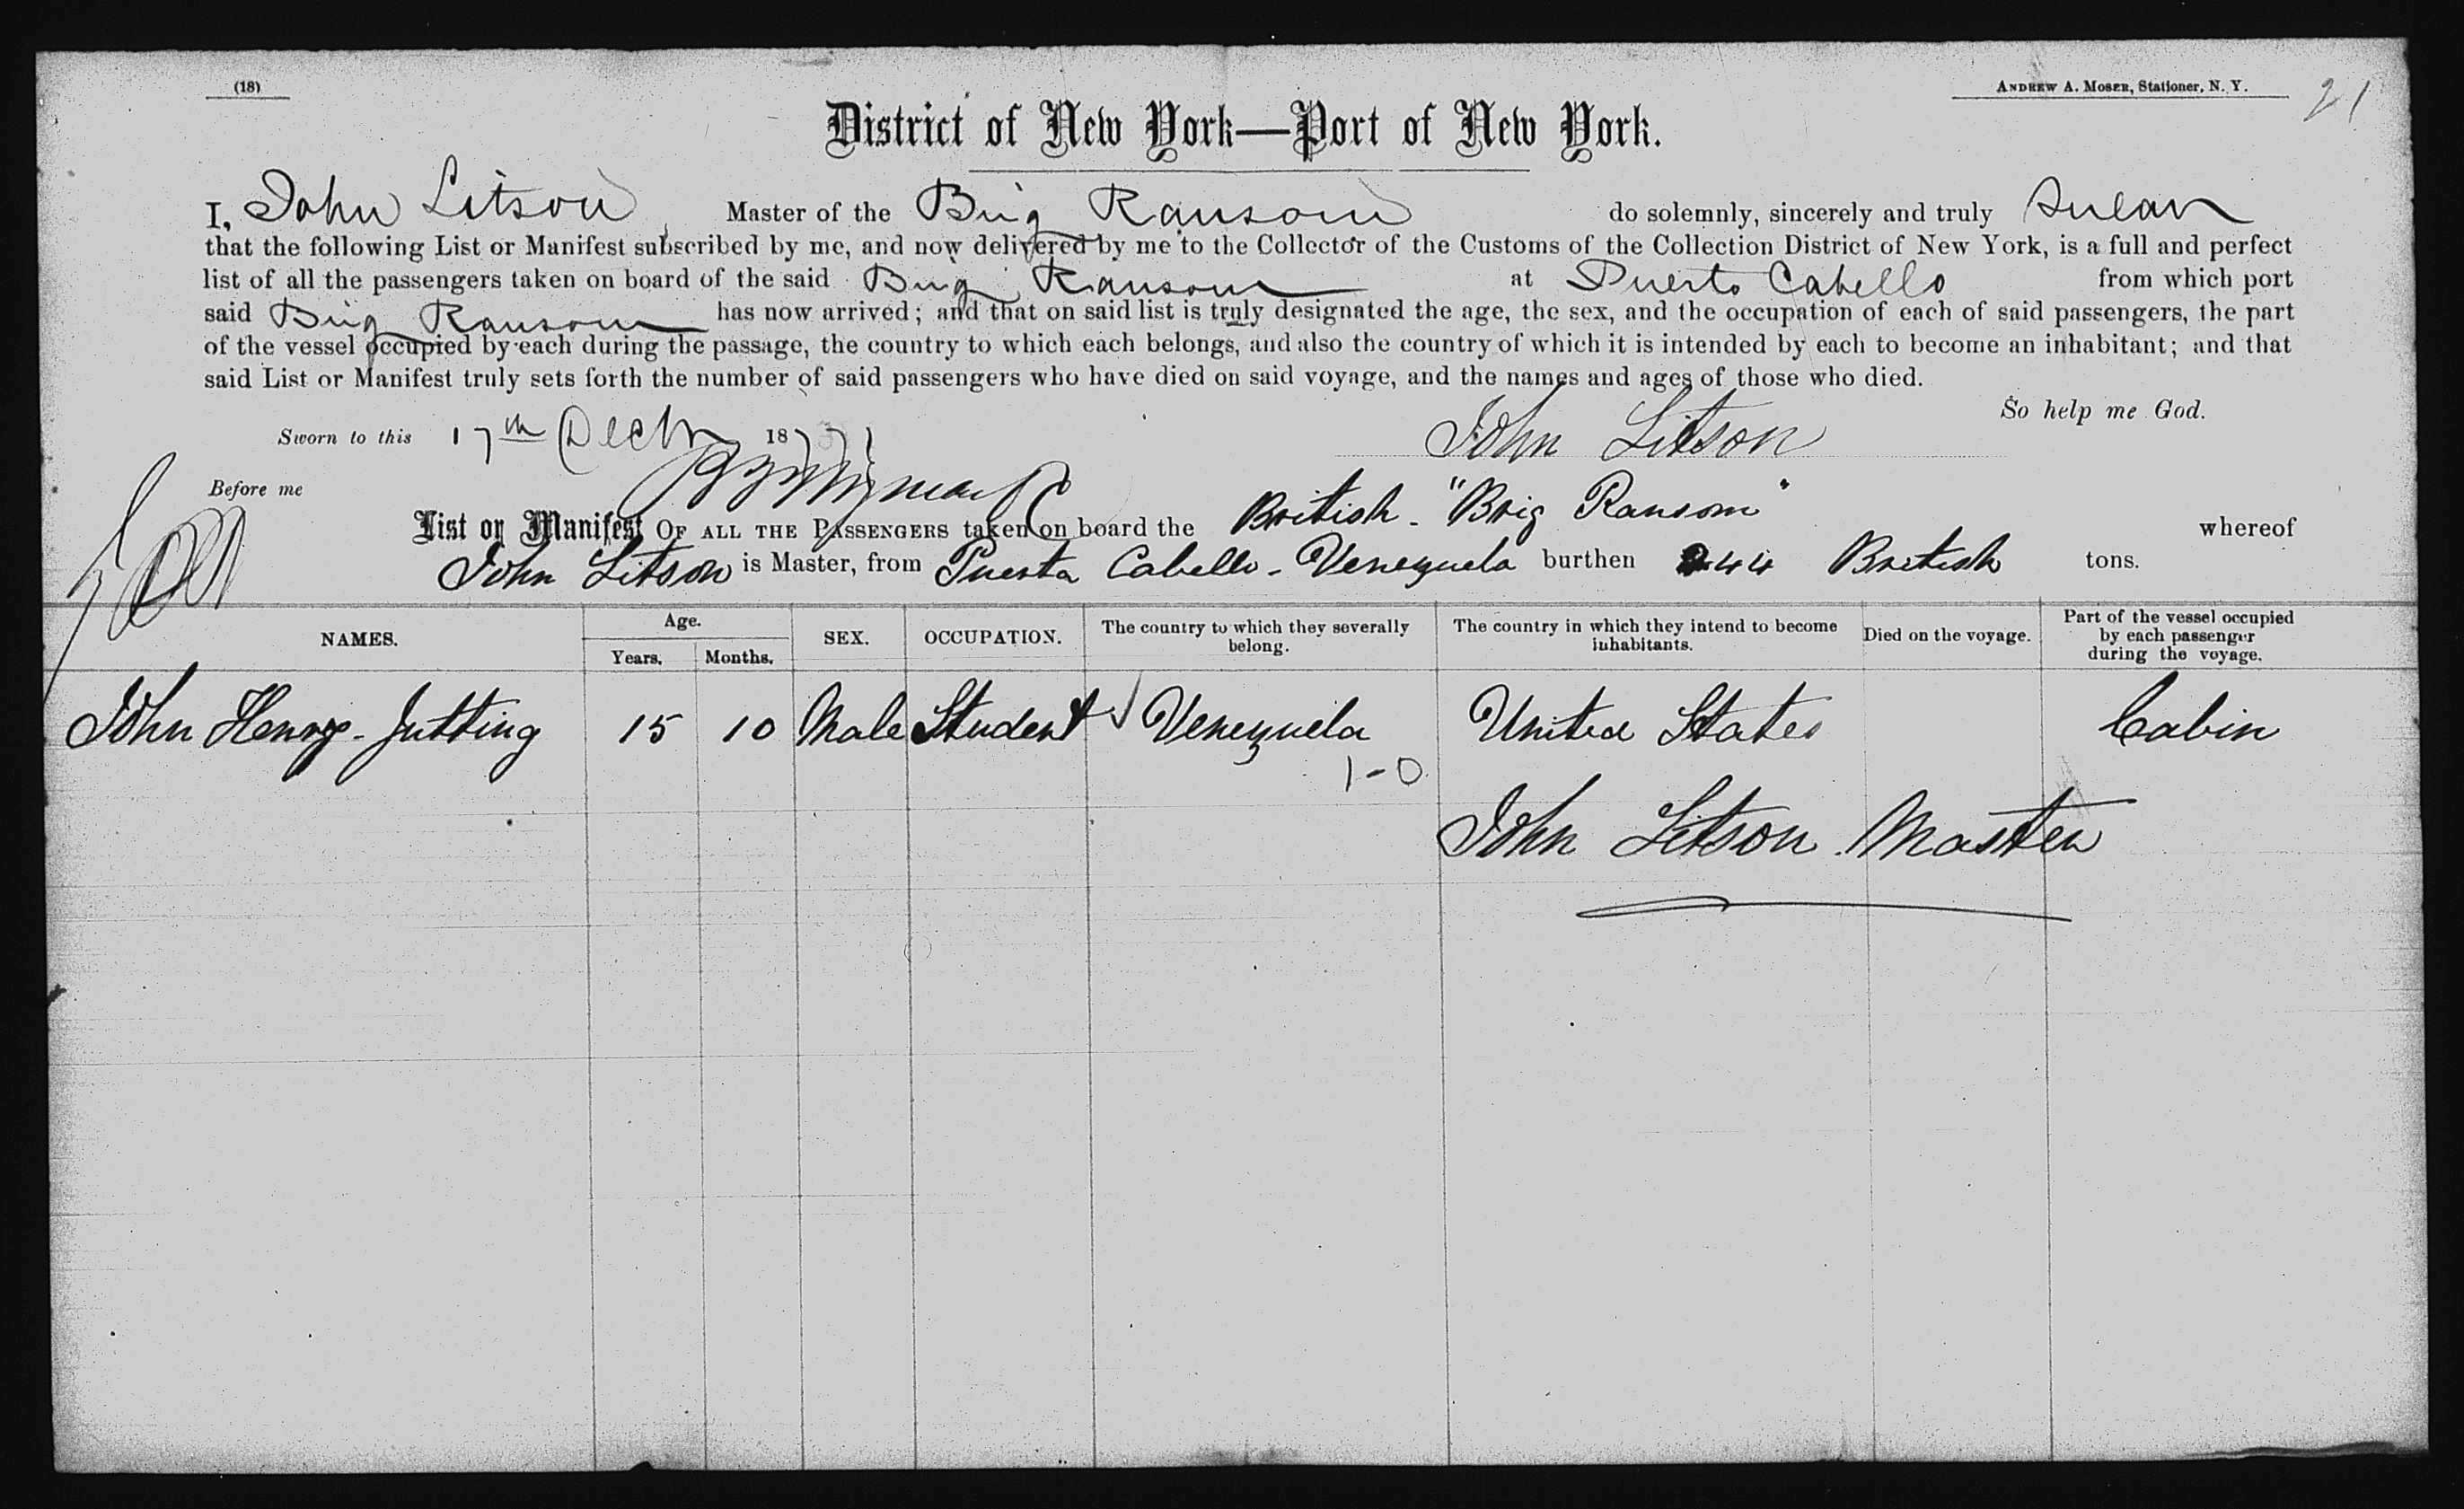 (18)
Andrew A. Moser, Stationer, N. Y.
21
District of New York—Port of New York.
I, John Litson Master of the Brig Ransom do solemnly, sincerely and truly
that the following List or Manifest subscribed by me, and now delivered by me to the Collector of the Customs of the Collection District of New York, is a full and perfect
list of all the passengers taken on board of the said Brig Ransom at Puerto Cabello from which port
said Brig Ransom has now arrived; and that on said list is truly designated the age, the sex, and the occupation of each of said passengers, the part
of the vessel occupied by each during the passage, the country to which each belongs, and also the country of which it is intended by each to become an inhabitant; and that
said List or Manifest truly sets forth the number of said passengers who have died on said voyage, and the names and ages of those who died.
So help me God.
Sworn to this 17th Decbr 1877 John Litson
Before me
List or Manifest OF ALL THE PASSENGERS taken on board the British "Brig Ransom" whereof
John Litson is Master, from Puerta Cabello - Venezuela burthen 244 British tons.
NAMES. Age. Years. Months. SEX. OCCUPATION. The country to which they severally belong. The country in which they intend to become inhabitants. Died on the voyage. Part of the vessel occupied by each passenger during the voyage.
John Henry - Jutting 15 10 Male Student Venezuela United States Cabin
1-0
John Litson Master